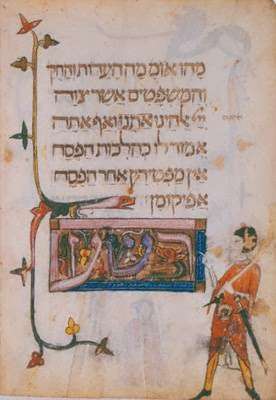 מהו אומ מה העדות והחק
והמשפטים אשר ציוה
ייי אלהינו אתנו ואף אתה
אמור לו כהלכות הפסח
אין מפטירין אחר הפסח
אפיקומן